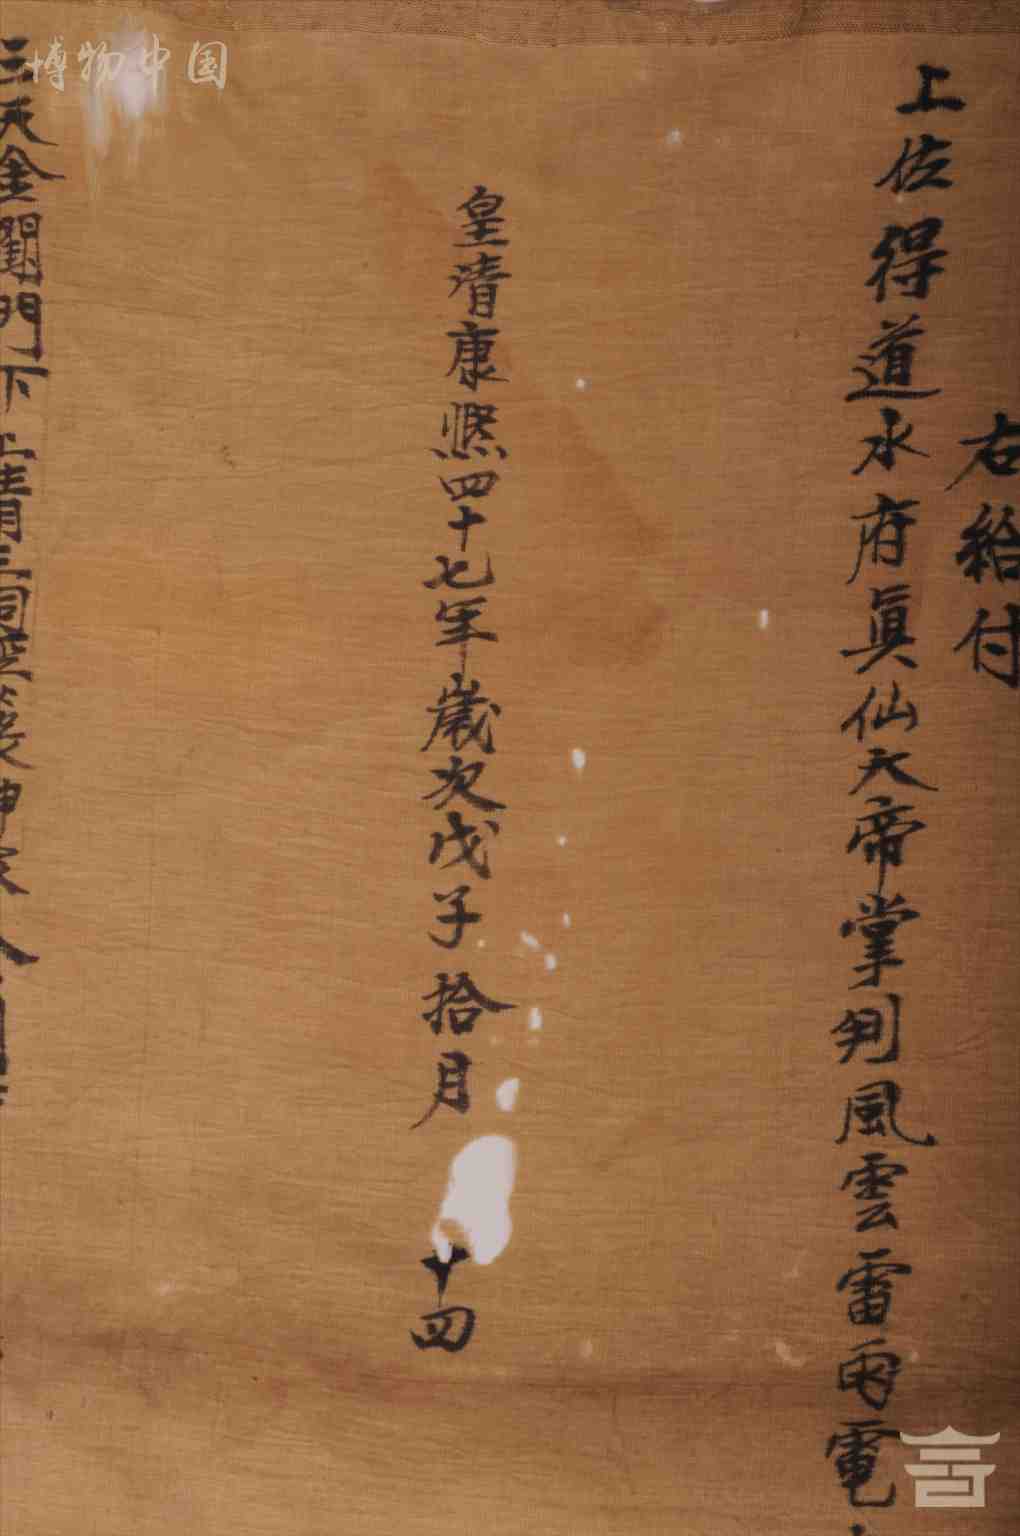 右給付
上佐得道水府眞仙大帝掌判風雲雷雨電
皇清康熈四十七年歲次戊子拾月
十四
三天金闕門下上清三洞
博物中国